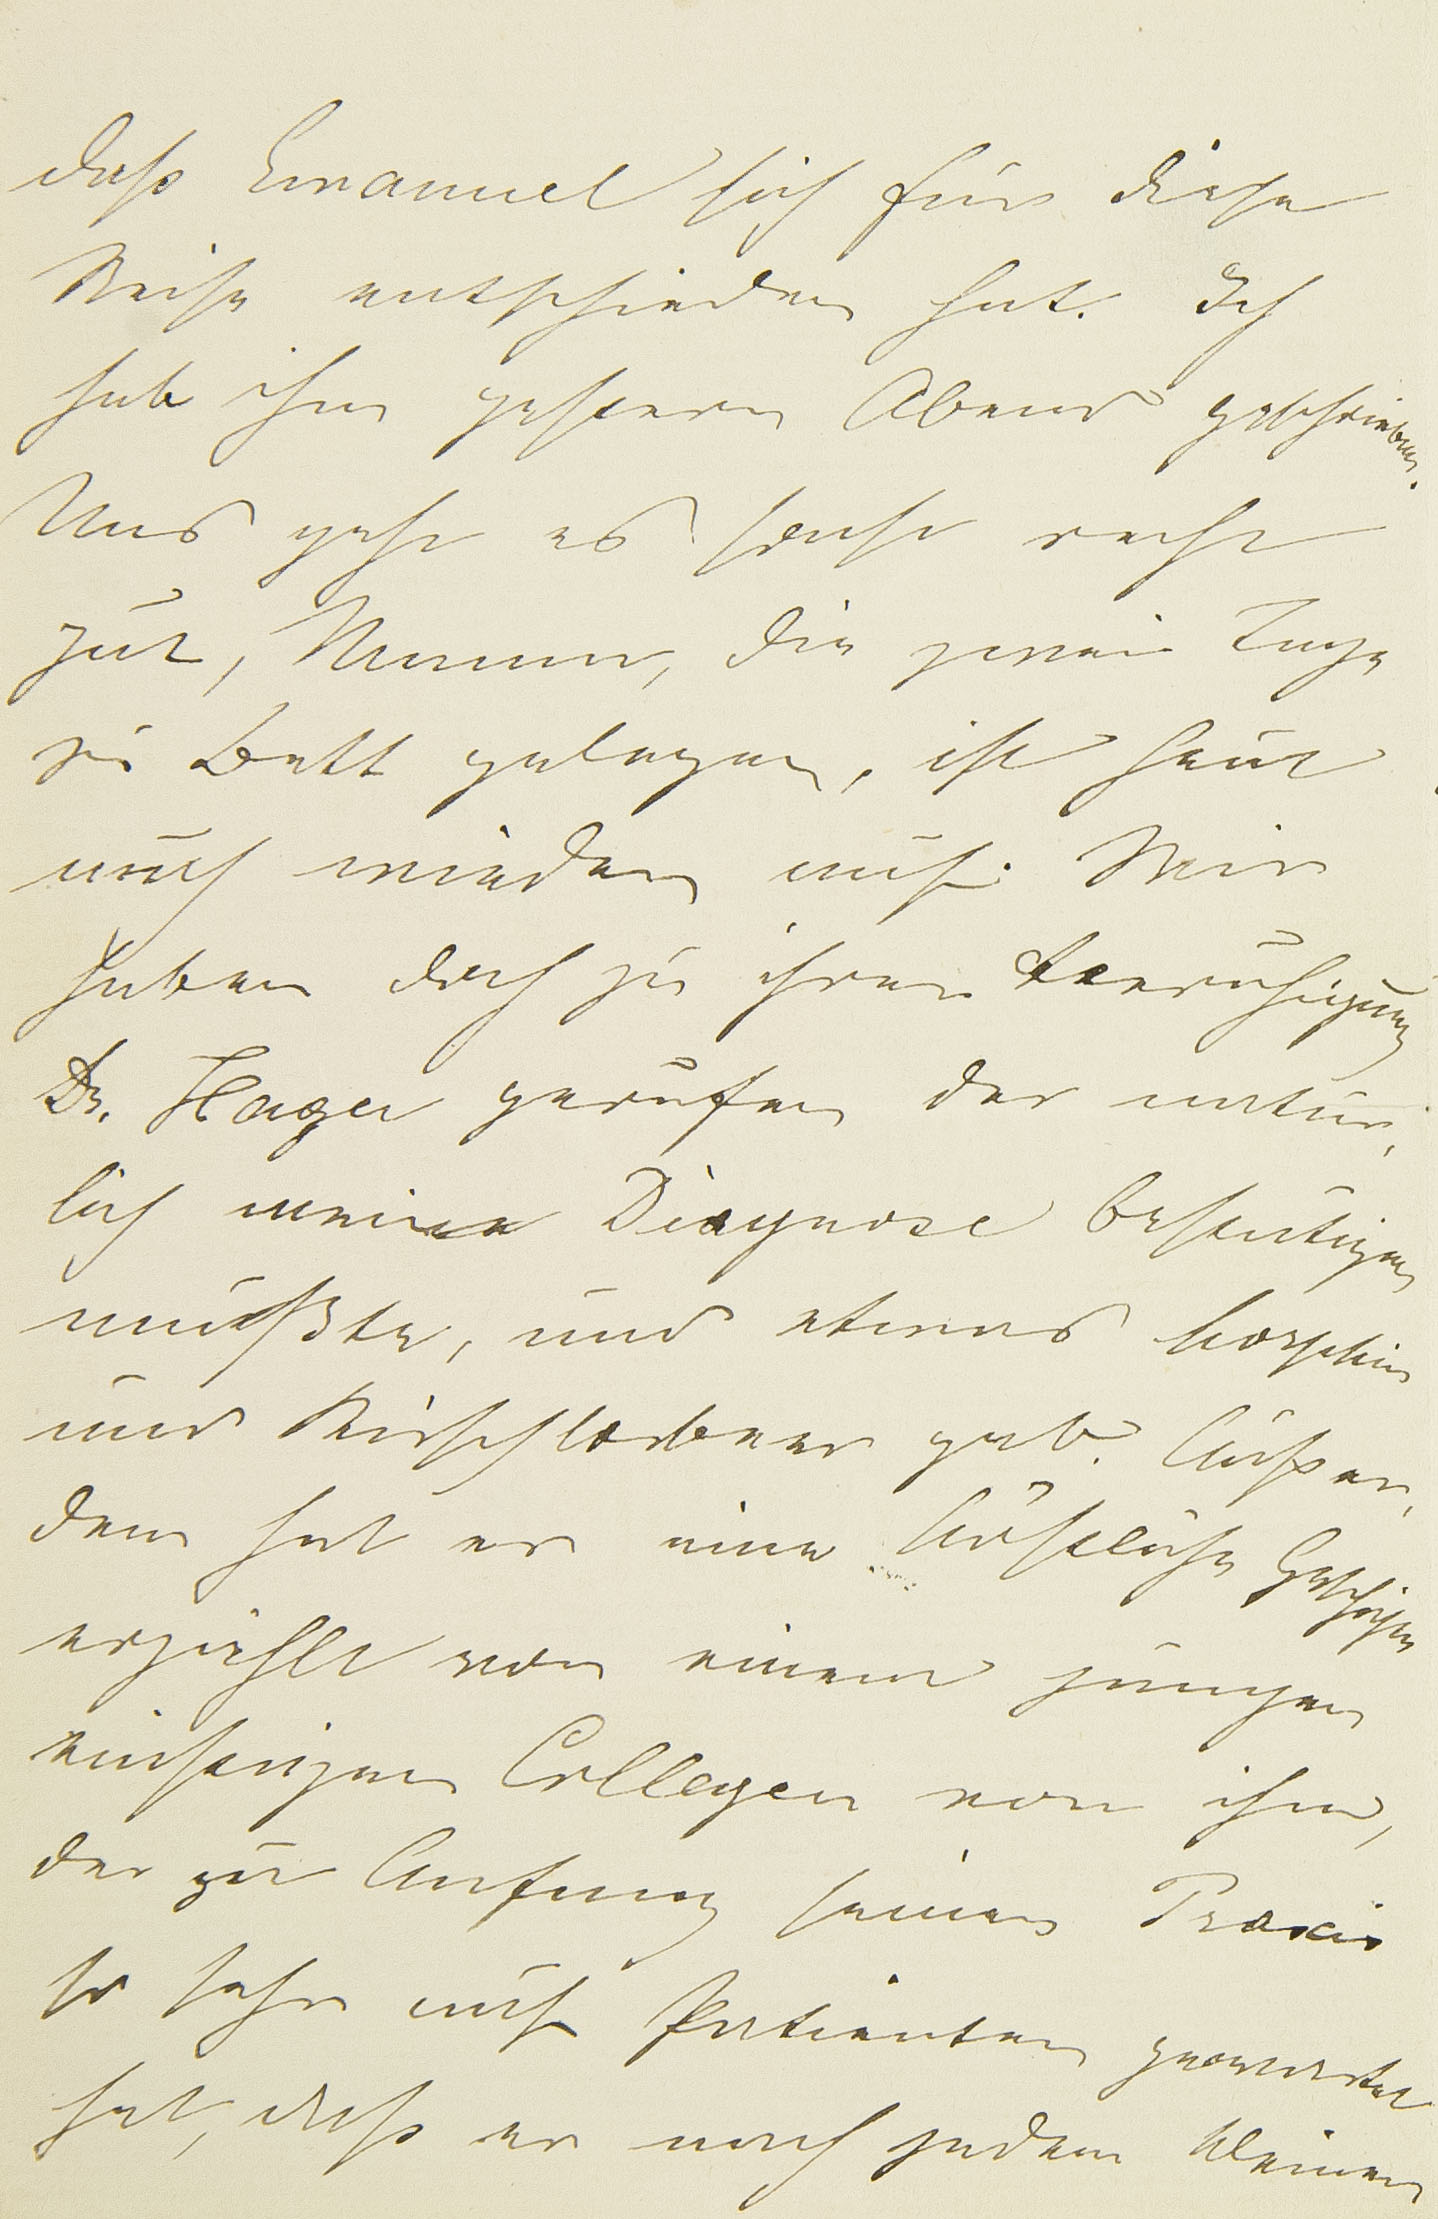 daß Emanuel sich für diese
Reise entschieden hat. Ich
hab ihm gestern Abend geschrieben.
Uns geht es sonst recht
gut, Mama, die zwei Tage
zu Bett gelegen, ist heut
auch wieder auf. Wir
haben doch zu ihrer Beruhigung
Dr. Hager gerufen der natür,
lich meine Diagnose bestätigen
mußte, und etwas Morphin
und Kirschlorbeer gab. Außer,
dem hat er eine köstliche Geschichte
erzählt von einem jungen
einstigen Collegen von ihm,
der zu Anfang seiner Praxis
so sehr auf Patienten gewartet
hat, daß er nach jedem kleinen